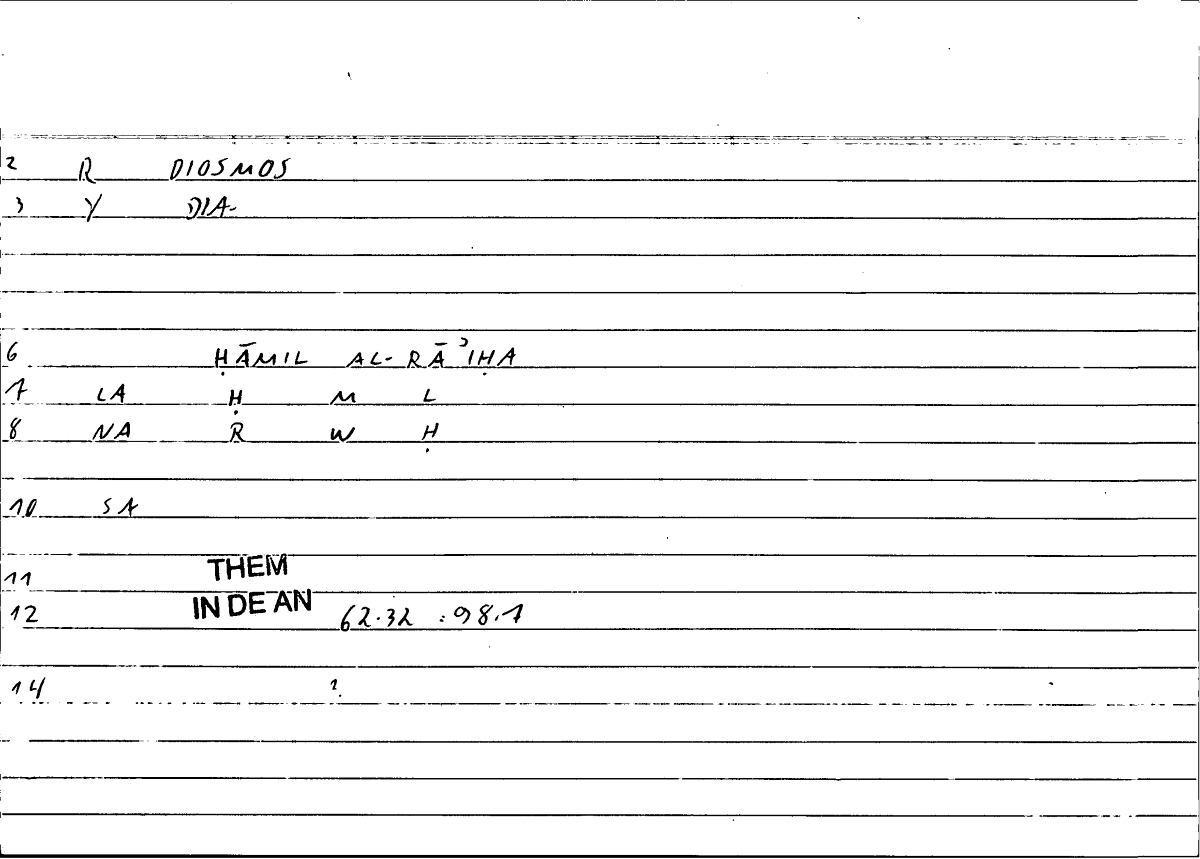 2 R DIOSMOS
3 Y DIA-
6 ḤĀMIL AL-RĀʾIḤA
7 LA Ḥ M L
8 NA R W Ḥ
10 SA
11 THEM
12 IN DE AN 62.32 : 98.1
14